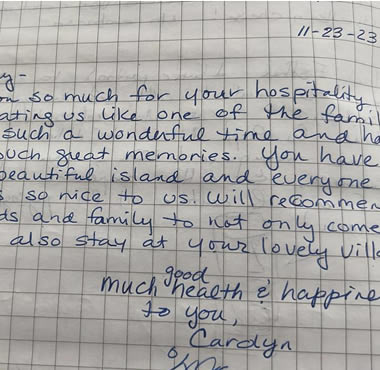 11-23-23
y-
so much for your hospitality,
ating us like one of the famil
such a wonderful time and ha
such great memories. You have
beautiful island and everyone
s so nice to us. Will recommen
ds and family to not only come
also stay at your lovely vill
good
much health & happine
to you,
Carolyn